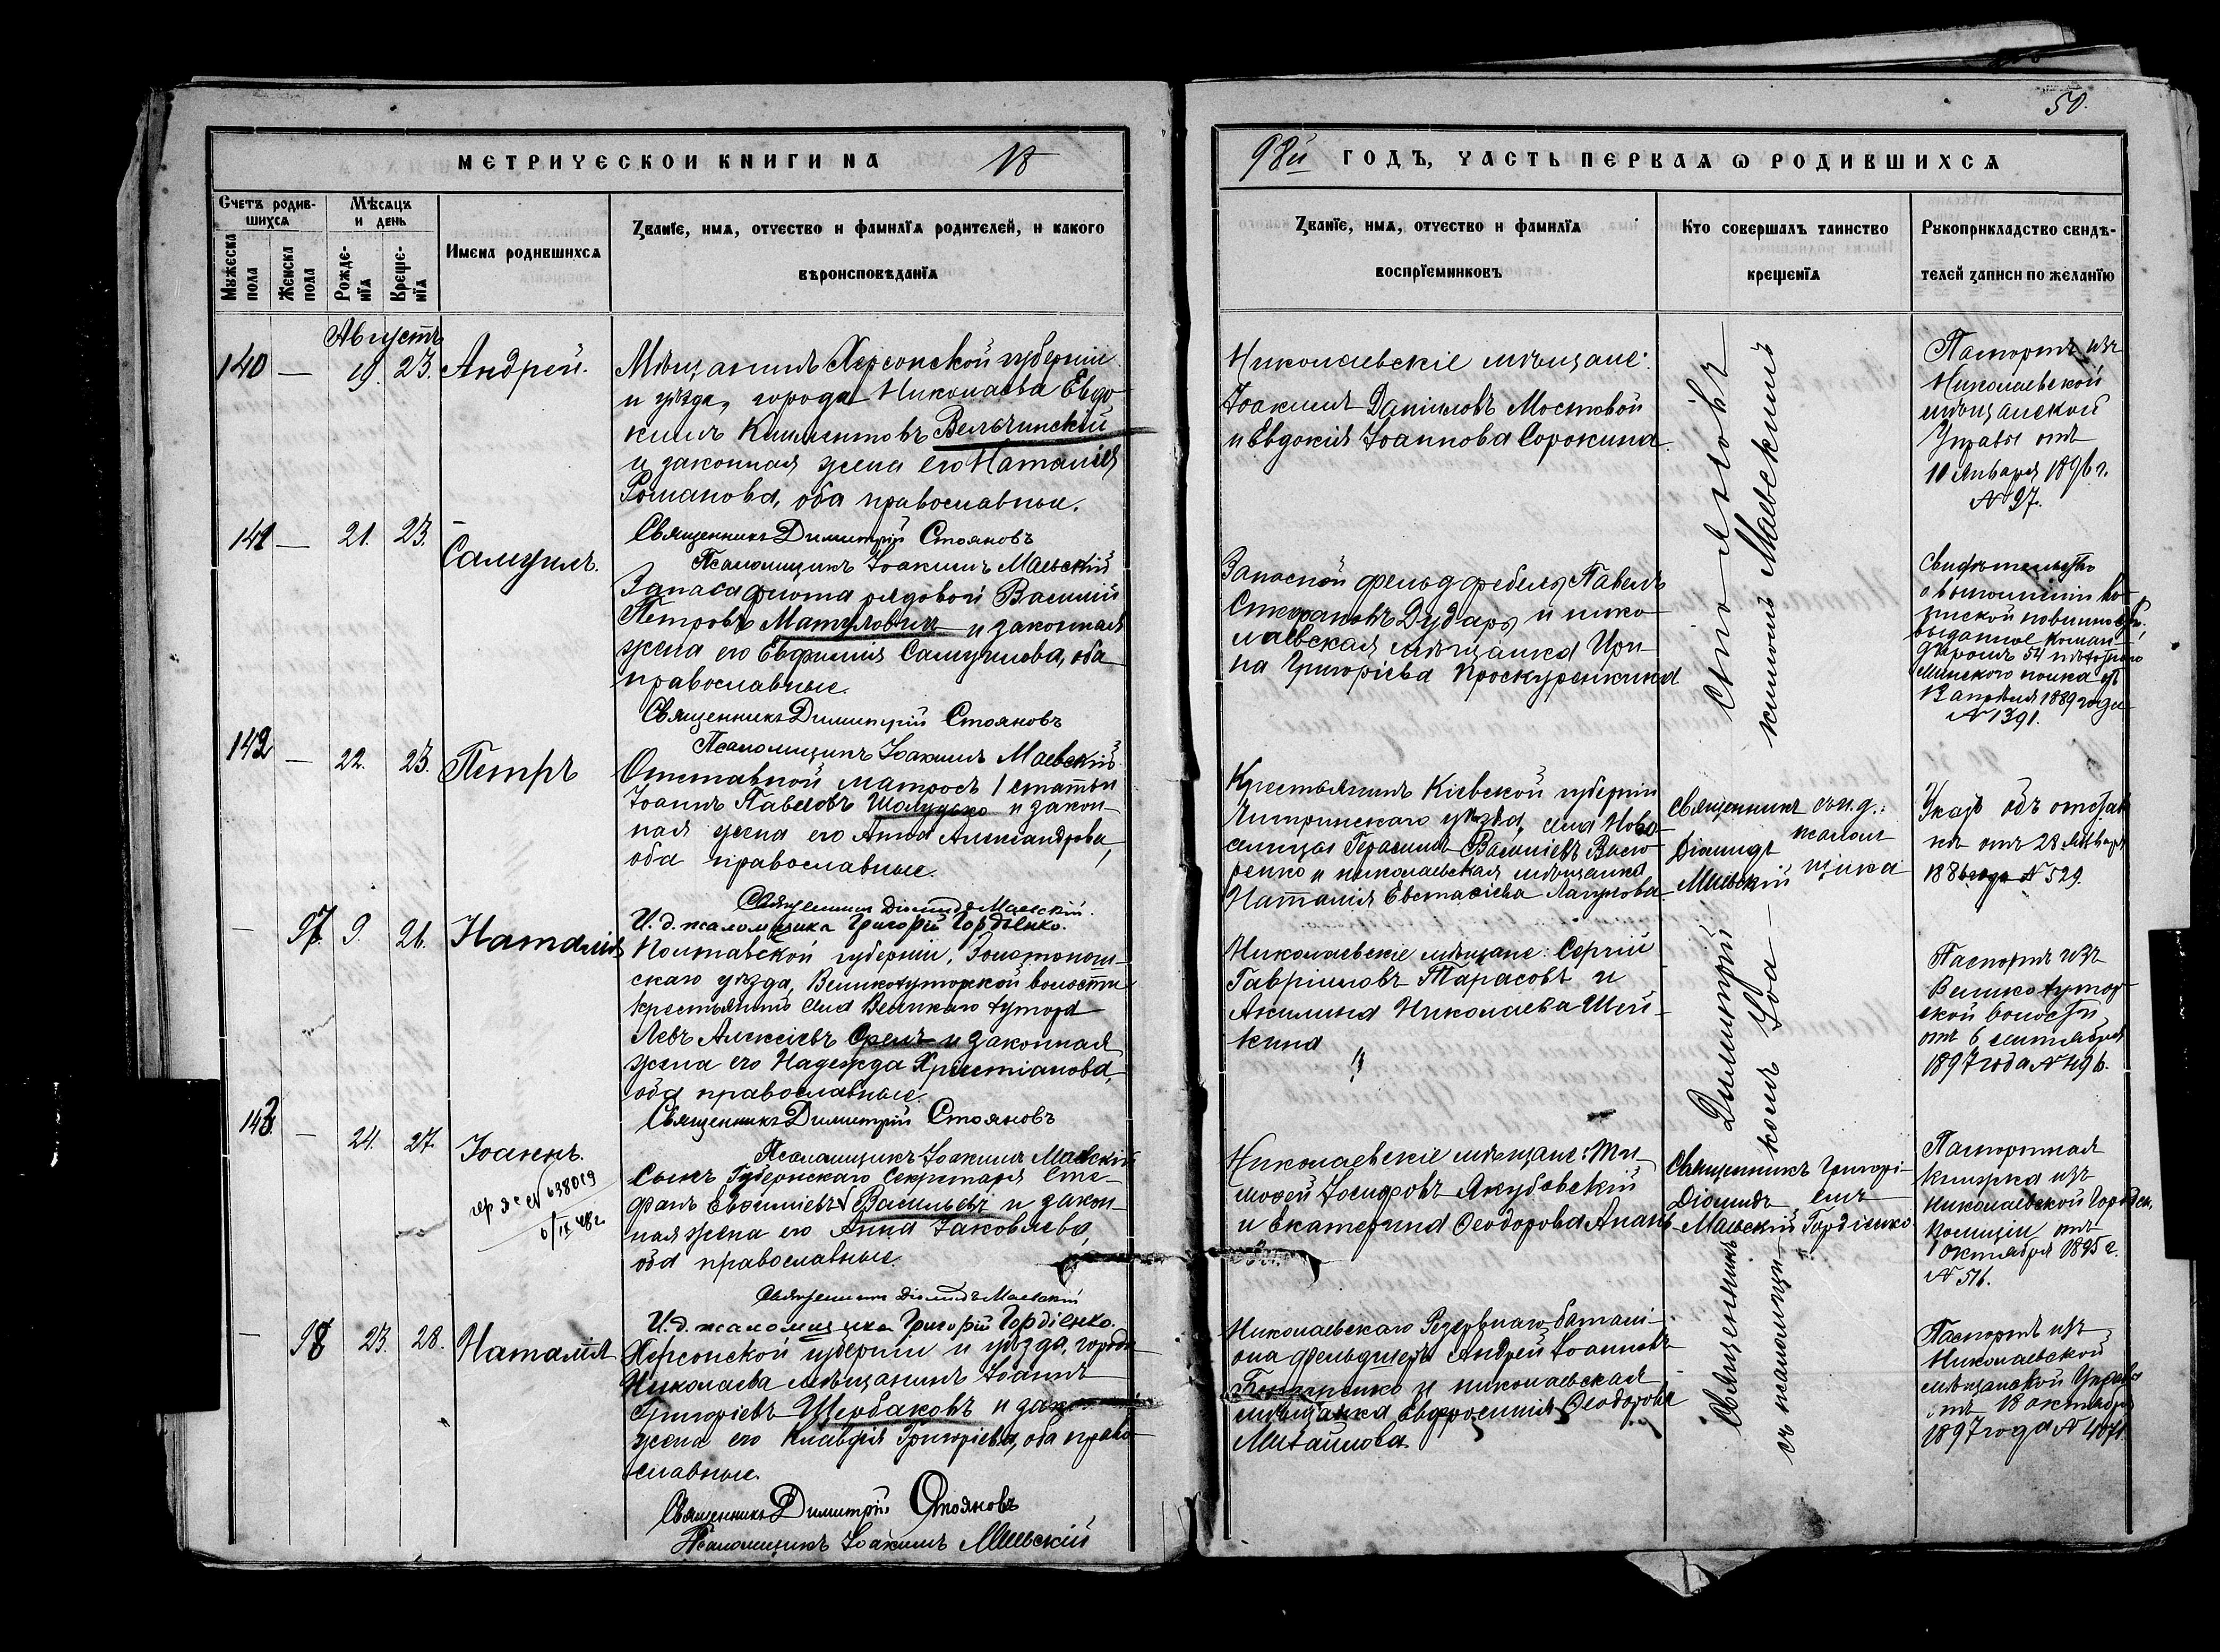 50.
МЕТРИЧЕСКОЙ КНИГИ НА 18
98й ГОДЪ, ЧАСТЬ ПЕРВАЯ Ѡ РОДИВШИХСЯ
Счетъ родив-
шихся
Мѣсяцъ
и день
Мужеска
пола
Женска
пола
Рожде-
нїя
Креще-
нїя
Имена родившихся
Званїе, имя, отчество и фамилїя родителей, и какого
вѣроисповѣданїя
Званїе, имя, отчество и фамилїя
воспрїемниковъ
Кто совершалъ таинство
крещенїя
Рукоприкладство свидѣ-
телей записи по желанїю
Августъ
140 — 19. 23. Андрей.
Мѣщанинъ Херсонской губерніи
и уѣзда, города Николаева Евдо-
кимъ Климентовъ Вельчинскій
и законная жена его Наталія
Романова, оба православные.
Священникъ Димитрій Стояновъ
Псаломщикъ Іоакимъ Маевскій
Николаевскіе мѣщане:
Іоакимъ Даніиловъ Мостовой
и Евдокія Іоаннова Сорокина.
Паспортъ изъ
Николаевской
мѣщанской
Управы отъ
10 Января 1896 г.
№ 97.
141 — 21. 23. Самуилъ.
Запаса флота рядовой Василій
Петровъ Матуловичъ и законная
жена его Евфимія Самуилова, оба
православные.
Священникъ Димитрій Стояновъ
Псаломщикъ Іоакимъ Маевскій
Запасной фельдфебель Павелъ
Стефановъ Дударь и нико-
лаевская мѣщанка Ири-
на Григоріева Проскуренкина
Свидѣтельство
о выполненіи во-
инской повинности
выданное коман-
диромъ 54 пѣхотнаго
Минскаго полка отъ
13 апрѣля 1889 года
№ 1391.
142 — 22. 23. Петръ
Отставной матросъ 1 статьи
Іоаннъ Павловъ Шолудько и закон-
ная жена его Анна Александрова,
оба православные.
Священникъ Діомидъ Маевскій.
И. д. псаломщика Григорій Гордіенко.
Крестьянинъ Кіевской губерніи
Чигиринскаго уѣзда, села Ново-
селицы Герасимъ Василіевъ
и николаевская мѣщанка
Наталія Евстафіева Лагунова.
Священникъ
Діомидъ
Маевскій
съ и. д.
псалом
щика
Указъ объ отстав
кѣ отъ 28 Января
1886 года № 529.
— 97. 9. 26. Наталія
Полтавской губерніи, Золотонош-
скаго уѣзда, Великохуторской волости
крестьянинъ села Великаго Хутора
Левъ Алексіевъ Орелъ и законная
жена его Надежда Христіанова,
оба православные.
Священникъ Димитрій Стояновъ
Псаломщикъ Іоакимъ Маевскій
Николаевскіе мѣщане: Сергій
Гавріиловъ Тарасовъ и
Акилина Николаева Шей-
кина
Паспортъ изъ
Великохутор-
ской волости
отъ 6 сентября
1897 года № 496.
143. — 24. 27. Іоаннъ.
Сынъ Губернскаго Секретаря Сте-
фанъ Евфиміевъ Васильевъ и закон-
ная жена его Анна Іаковлева,
оба православные.
Священникъ Діомидъ Маевскій
И. д. псаломщика Григорій Гордіенко.
Николаевскіе мѣщане: Ти-
мофей Іосифовъ Якубовскій
и Екатерина Ѳеодорова
Священникъ
Діомидъ
Маевскій
Григорі-
емъ
Гордіенко
Паспортная
книжка изъ
Николаевской Городск.
полиціи отъ
1 Октября 1895 г.
№ 516.
— 98 23. 28. Наталія
Херсонской губерніи и уѣзда, города
Николаева мѣщанинъ Іоаннъ
Григоріевъ Щербаковъ и
жена его Клавдія Григоріева, оба право-
славные.
Священникъ Димитрій Стояновъ
Псаломщикъ Іоакимъ Маевскій
Николаевскаго Резервнаго баталі-
она фельдшеръ Андрей Іоанновъ
Бондаренко и николаевская
мѣщанка Евфросинія Ѳеодорова
Михайлова.
Паспортъ изъ
Николаевской
мѣщанской Управы
отъ 18 октября
1897 года № 4071
Священникъ Димитрій Стояновъ
съ псаломщи-
комъ Іоа-
кимомъ Маевскимъ